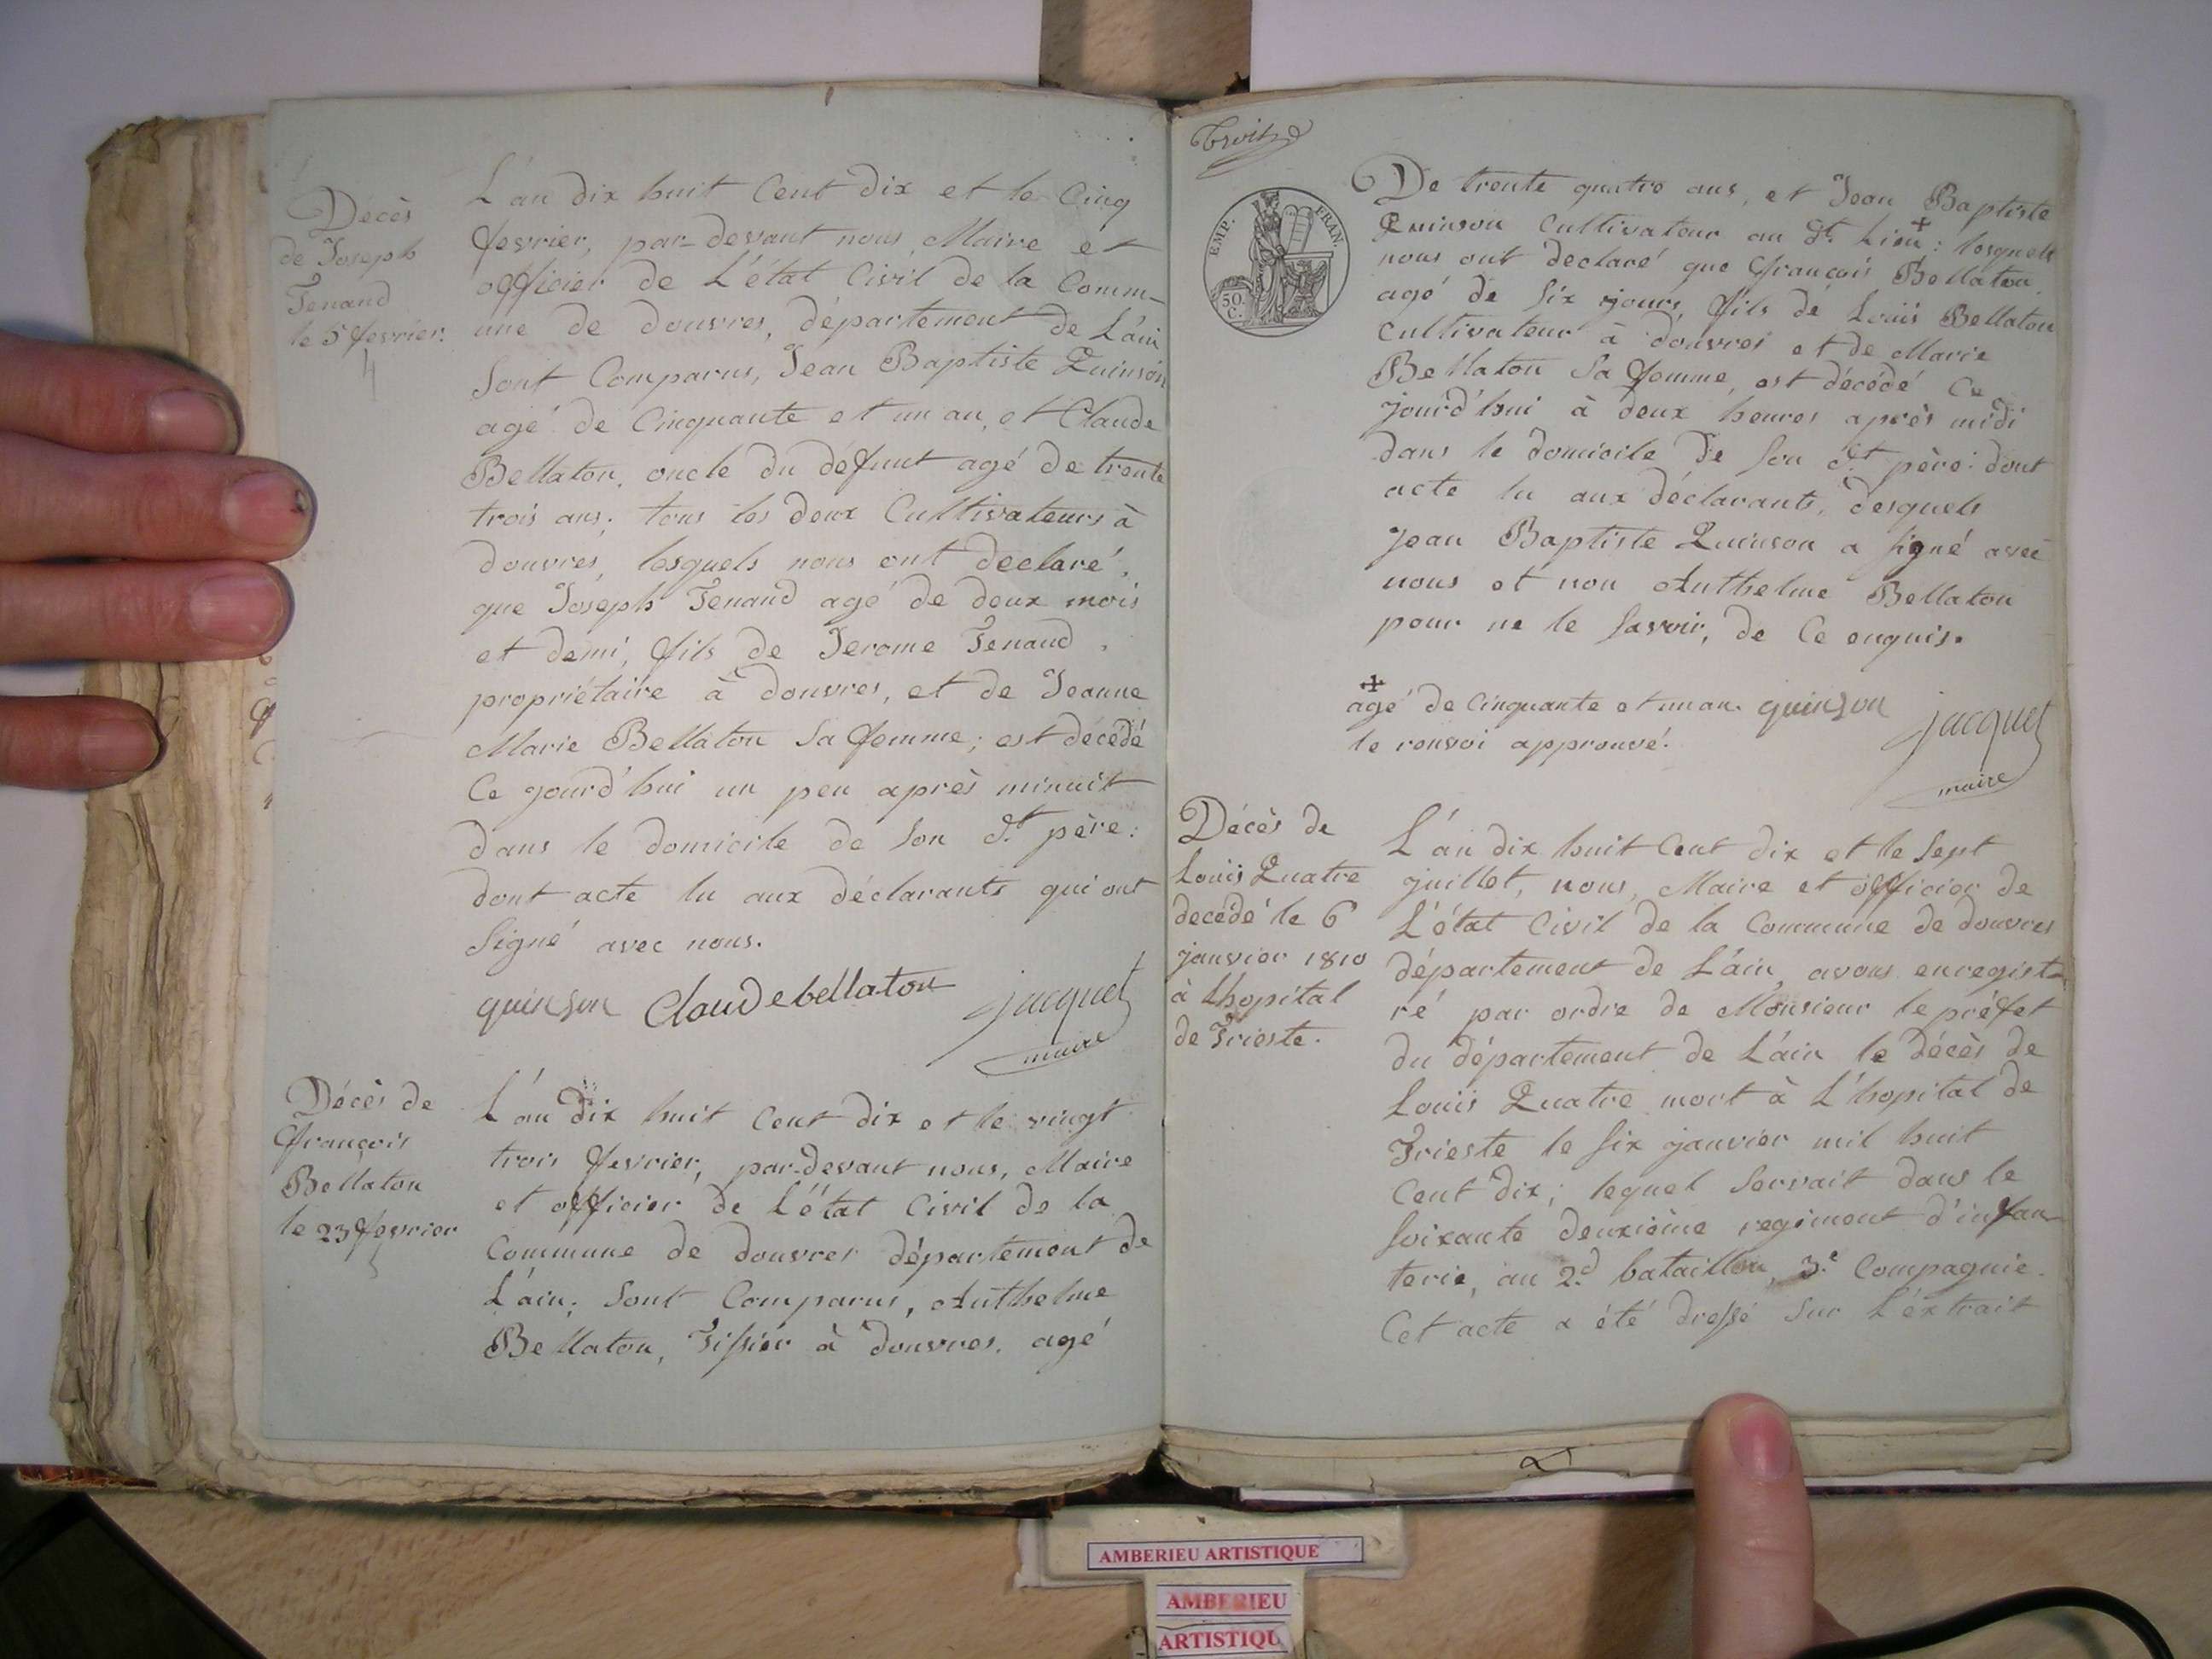 Décès
de Joseph
Tenand
le 5 fevrier.
L'an dix huit Cent dix et le Cinq
fevrier, par-devant nous Maire et
officier de L'état Civil de la Comm-
une de douvres, département de L'ain
Sont Comparus, Jean Baptiste Quinson
agé de Cinquante et un an, et Claude
Bellaton, oncle du défunt agé de trente
trois ans; tous les deux Cultivateurs à
douvres, lesquels nous ont declaré,
que Joseph Tenand agé de deux mois
et demi, fils de Jerome Tenand,
propriétaire à douvres, et de Jeanne
Marie Bellaton Sa femme; est décédé
Ce jourd'hui un peu après minuit
dans le domicile de Son d.t père:
dont acte lu aux déclarants qui ont
Signé avec nous.
quinson Claudebellaton jacquet
maire
Décès de
françois
Bellaton
le 23 fevrier
L'an dix huit Cent dix et le vingt
trois fevrier, par-devant nous, Maire
et officier de L'état Civil de la
Commune de douvres département de
L'ain; Sont Comparus, Anthelme
Bellaton, Tissier à douvres, agé
EMP. FRAN.
50.
C.
De trente quatre ans, et Jean Baptiste
Quinson Cultivateur au d.t Lieu+: lesquels
nous ont declaré que françois Bellaton
agé de Six jours, fils de Louis Bellaton
Cultivateur à douvres et de Marie
Bellaton Sa femme, est décédé Ce
jourd'hui à deux heures après midi
dans le domicile de Son d.t père: dont
acte lu aux déclarants, desquels
Jean Baptiste Quinson a signé avec
nous et non Anthelme Bellaton
pour ne le Savoir, de Ce enquis.
+
agé de Cinquante et un an. quinson jacquet
le renvoi approuvé.
maire
Décès de
Louis Quatre
decédé le 6
janvier 1810
à Lhopital
de Trieste.
L'an dix huit Cent dix et le Sept
juillet, nous, Maire et officier de
L'état Civil de la Commune de douvres
département de L'ain, avons enregist-
ré par ordre de Monsieur le préfet
du département de L'ain le décès de
Louis Quatre mort à L'hopital de
Trieste le Six janvier mil huit
Cent dix; lequel Servait dans le
Soixante deuxième regiment d'infan-
terie, au 2.d bataillon, 3.e Compagnie.
Cet acte a été dressé Sur L'extrait
AMBERIEU ARTISTIQUE
AMBERIEU
ARTISTIQU